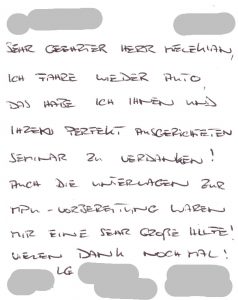 SEHR GEEHRTER HERR MELEKIAN,
ICH FAHRE WIEDER AUTO,
DAS HABE ICH IHNEN UND
IHREM PERFEKT AUSGERICHTETEN
SEMINAR ZU VERDANKEN!
AUCH DIE UNTERLAGEN ZUR
MPU-VORBEREITUNG WAREN
MIR EINE SEHR GROßE HILFE!
VIELEN DANK NOCHMAL!
LG